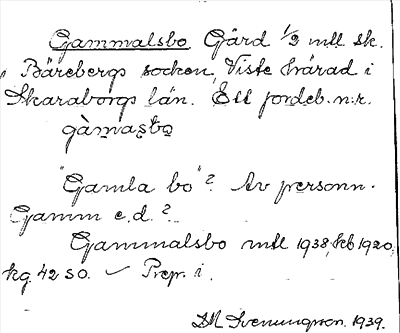 Gammalsbo Gård 1/2 mtl sk.
i Bärebergs socken, Viste härad i
Skaraborgs län. Ett jordeb. n:r.
gàmasbo
"Gamla bo"? Av personn.
Gamm e.d.?
Gammalsbo mtl 1938, kb 1920,
kg. 42 SO. ✓ Prep. i.
Svenungson. 1939.